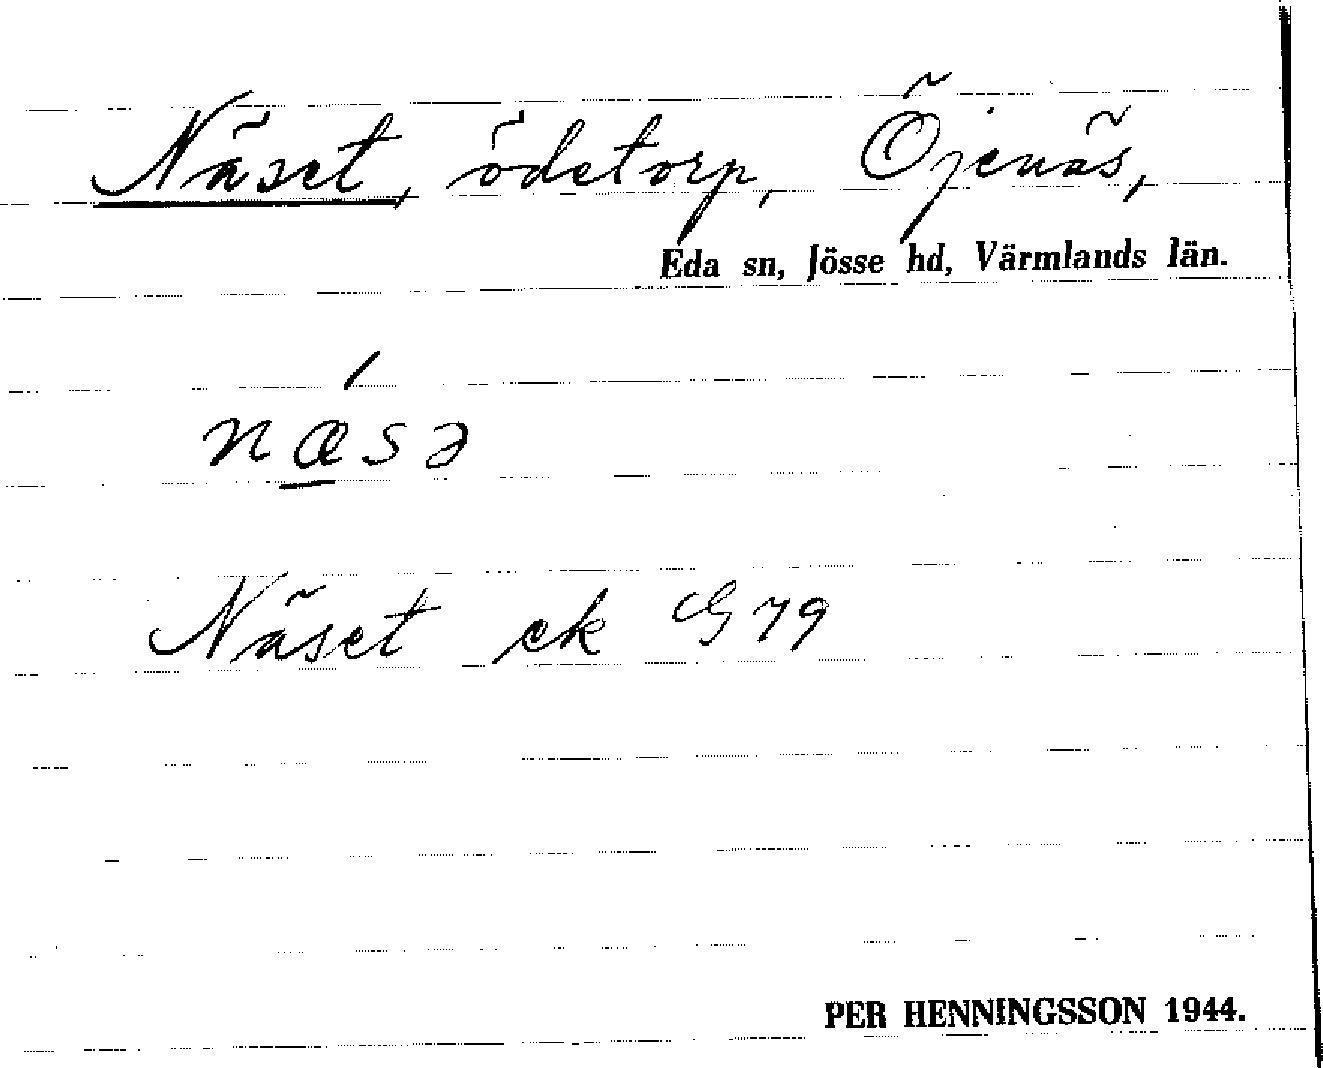 Näset, ödetorp, Öjenäs,
Eda sn, Jösse hd, Värmlands län.
nǽ̲sə
Näset ek G 79
PER HENNINGSSON 1944.